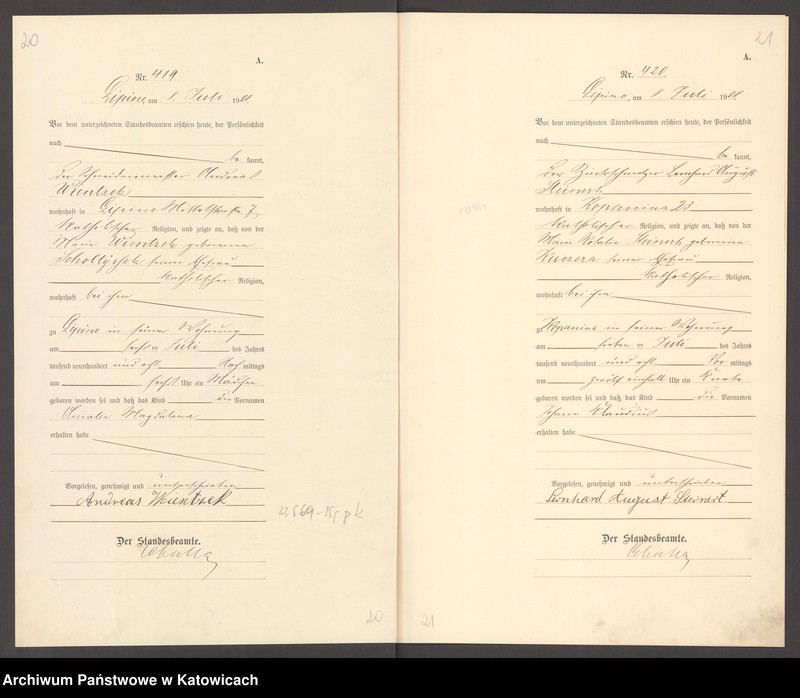 20
A.
Nr. 419
Lipine, am 8. Juli 1908.
Vor dem unterzeichneten Standesbeamten erschien heute, der Persönlichkeit
nach be kannt,
der Schneidermeister Andreas
Wientzek
wohnhaft in Lipine Mittelstraße 7
katholischer Religion, und zeigte an, daß von der
Marie Wientzek geborenen
seiner Ehefrau
katholischer Religion,
wohnhaft bei ihm
zu Lipine in seiner Wohnung
am sechsten Juli des Jahres
tausend neunhundert und acht Nach mittags
um sechs Uhr ein Mädchen
geboren worden sei und daß das Kind die Vornamen
Magdalena
erhalten habe
Vorgelesen, genehmigt und unterschrieben
Andreas Wientzek
Der Standesbeamte.
20
21
A.
Nr. 420.
Lipine, am 8. Juli 1908.
Vor dem unterzeichneten Standesbeamten erschien heute, der Persönlichkeit
nach be kannt,
der Zinkschmelzer Leonhard August
Steinert
wohnhaft in Kopanina 23
katholischer Religion, und zeigte an, daß von der
Rosalie Steinert geborenen
Kuczera seiner Ehefrau
katholischer Religion,
wohnhaft bei ihm
zu Kopanina in seiner Wohnung
am sieben ten Juli des Jahres
tausend neunhundert und acht Vor mittags
um zwölf einhalb Uhr ein Knabe
geboren worden sei und daß das Kind die Vornamen
Johann Klaudius
erhalten habe.
Vorgelesen, genehmigt und unterschrieben
Leonhard August Steinert
Der Standesbeamte.
21
Archiwum Państwowe w Katowicach